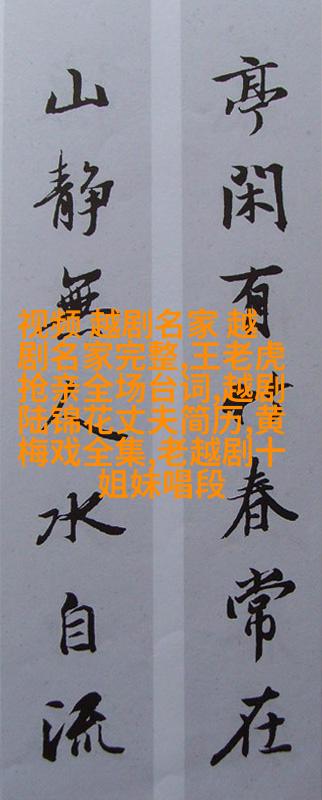 亭閑有春常在
山靜無人水自流
视频 越剧名家 越
剧名家完整,王老虎
抢亲全场台词,越剧
陆锦花丈夫简历,黄
梅戏全集,老越剧十
姐妹唱段